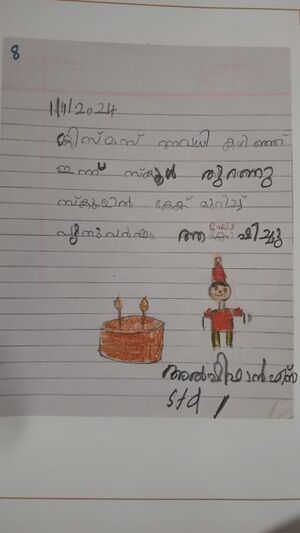 8
1/1/2024
ക്രിസ്മസ് അവധി കഴിഞ്ഞ്
ഇന്ന് സ്കൂൾ തുറന്നു
സ്കൂളിൽ കേക്ക് മുറിച്ച്
പുതുവർഷം ആഘോഷിച്ചു
അൽഷിഫാൻ എസ്
std 1